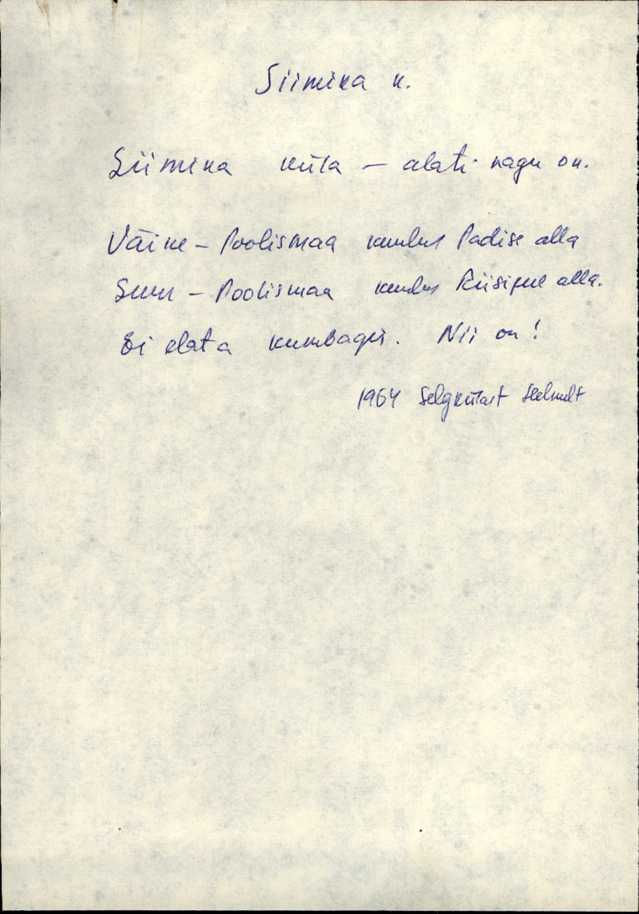 Siimika k.
Siimika küla – alati nagu on.
Väike – Poolismaa kuulus Padise alla
Suur – Poolismaa kuulus Riisipere alla.
Ei elata kumbagis. Nii on!
1964 Selgkülast